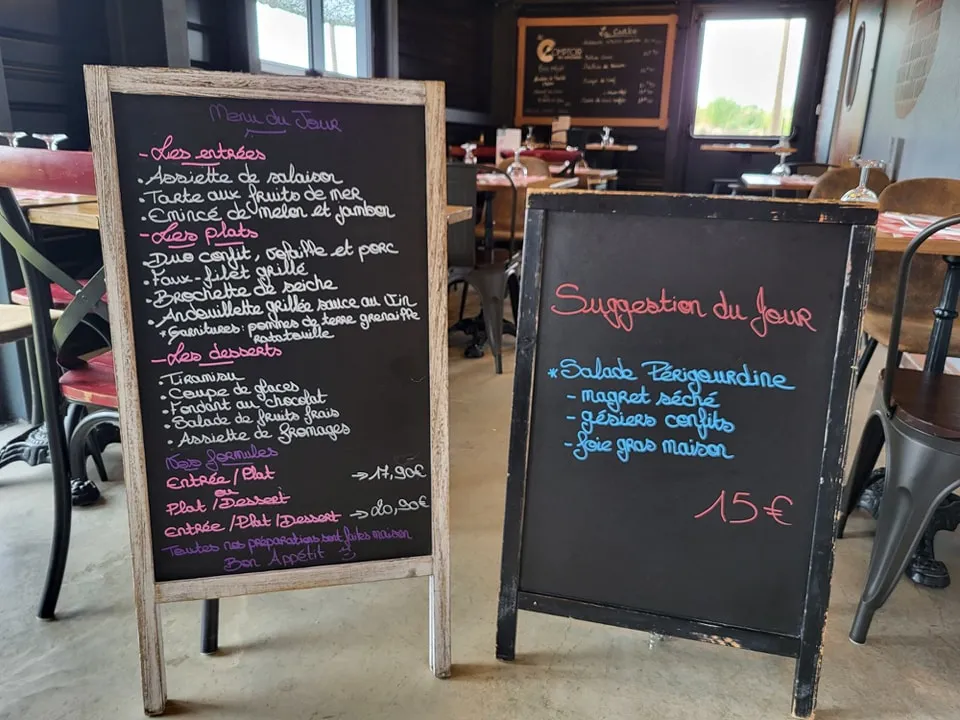 Menu du Jour
- Les entrées
• Assiette de salaison
• Tarte aux fruits de mer
• Emincé de melon et jambon
- Les plats
• Duo confit, volaille et porc
• Faux-filet grillé
• Brochette de seiche
• Andouillette grillée sauce au vin
* Garnitures: pommes de terre grenaille
ratatouille
- Les desserts
• Tiramisu
• Coupe de glaces
• Fondant au chocolat
• Salade de fruits frais
• Assiette de fromages
Nos formules
Entrée / Plat
ou
Plat / Dessert
→ 17,90€
Entrée / Plat / Dessert → 20,90€
Toutes nos préparations sont faites maison
Bon Appétit
Suggestion du Jour
* Salade Périgourdine
- magret séché
- gésiers confits
- foie gras maison
15€
COMPTOIR
La Carte